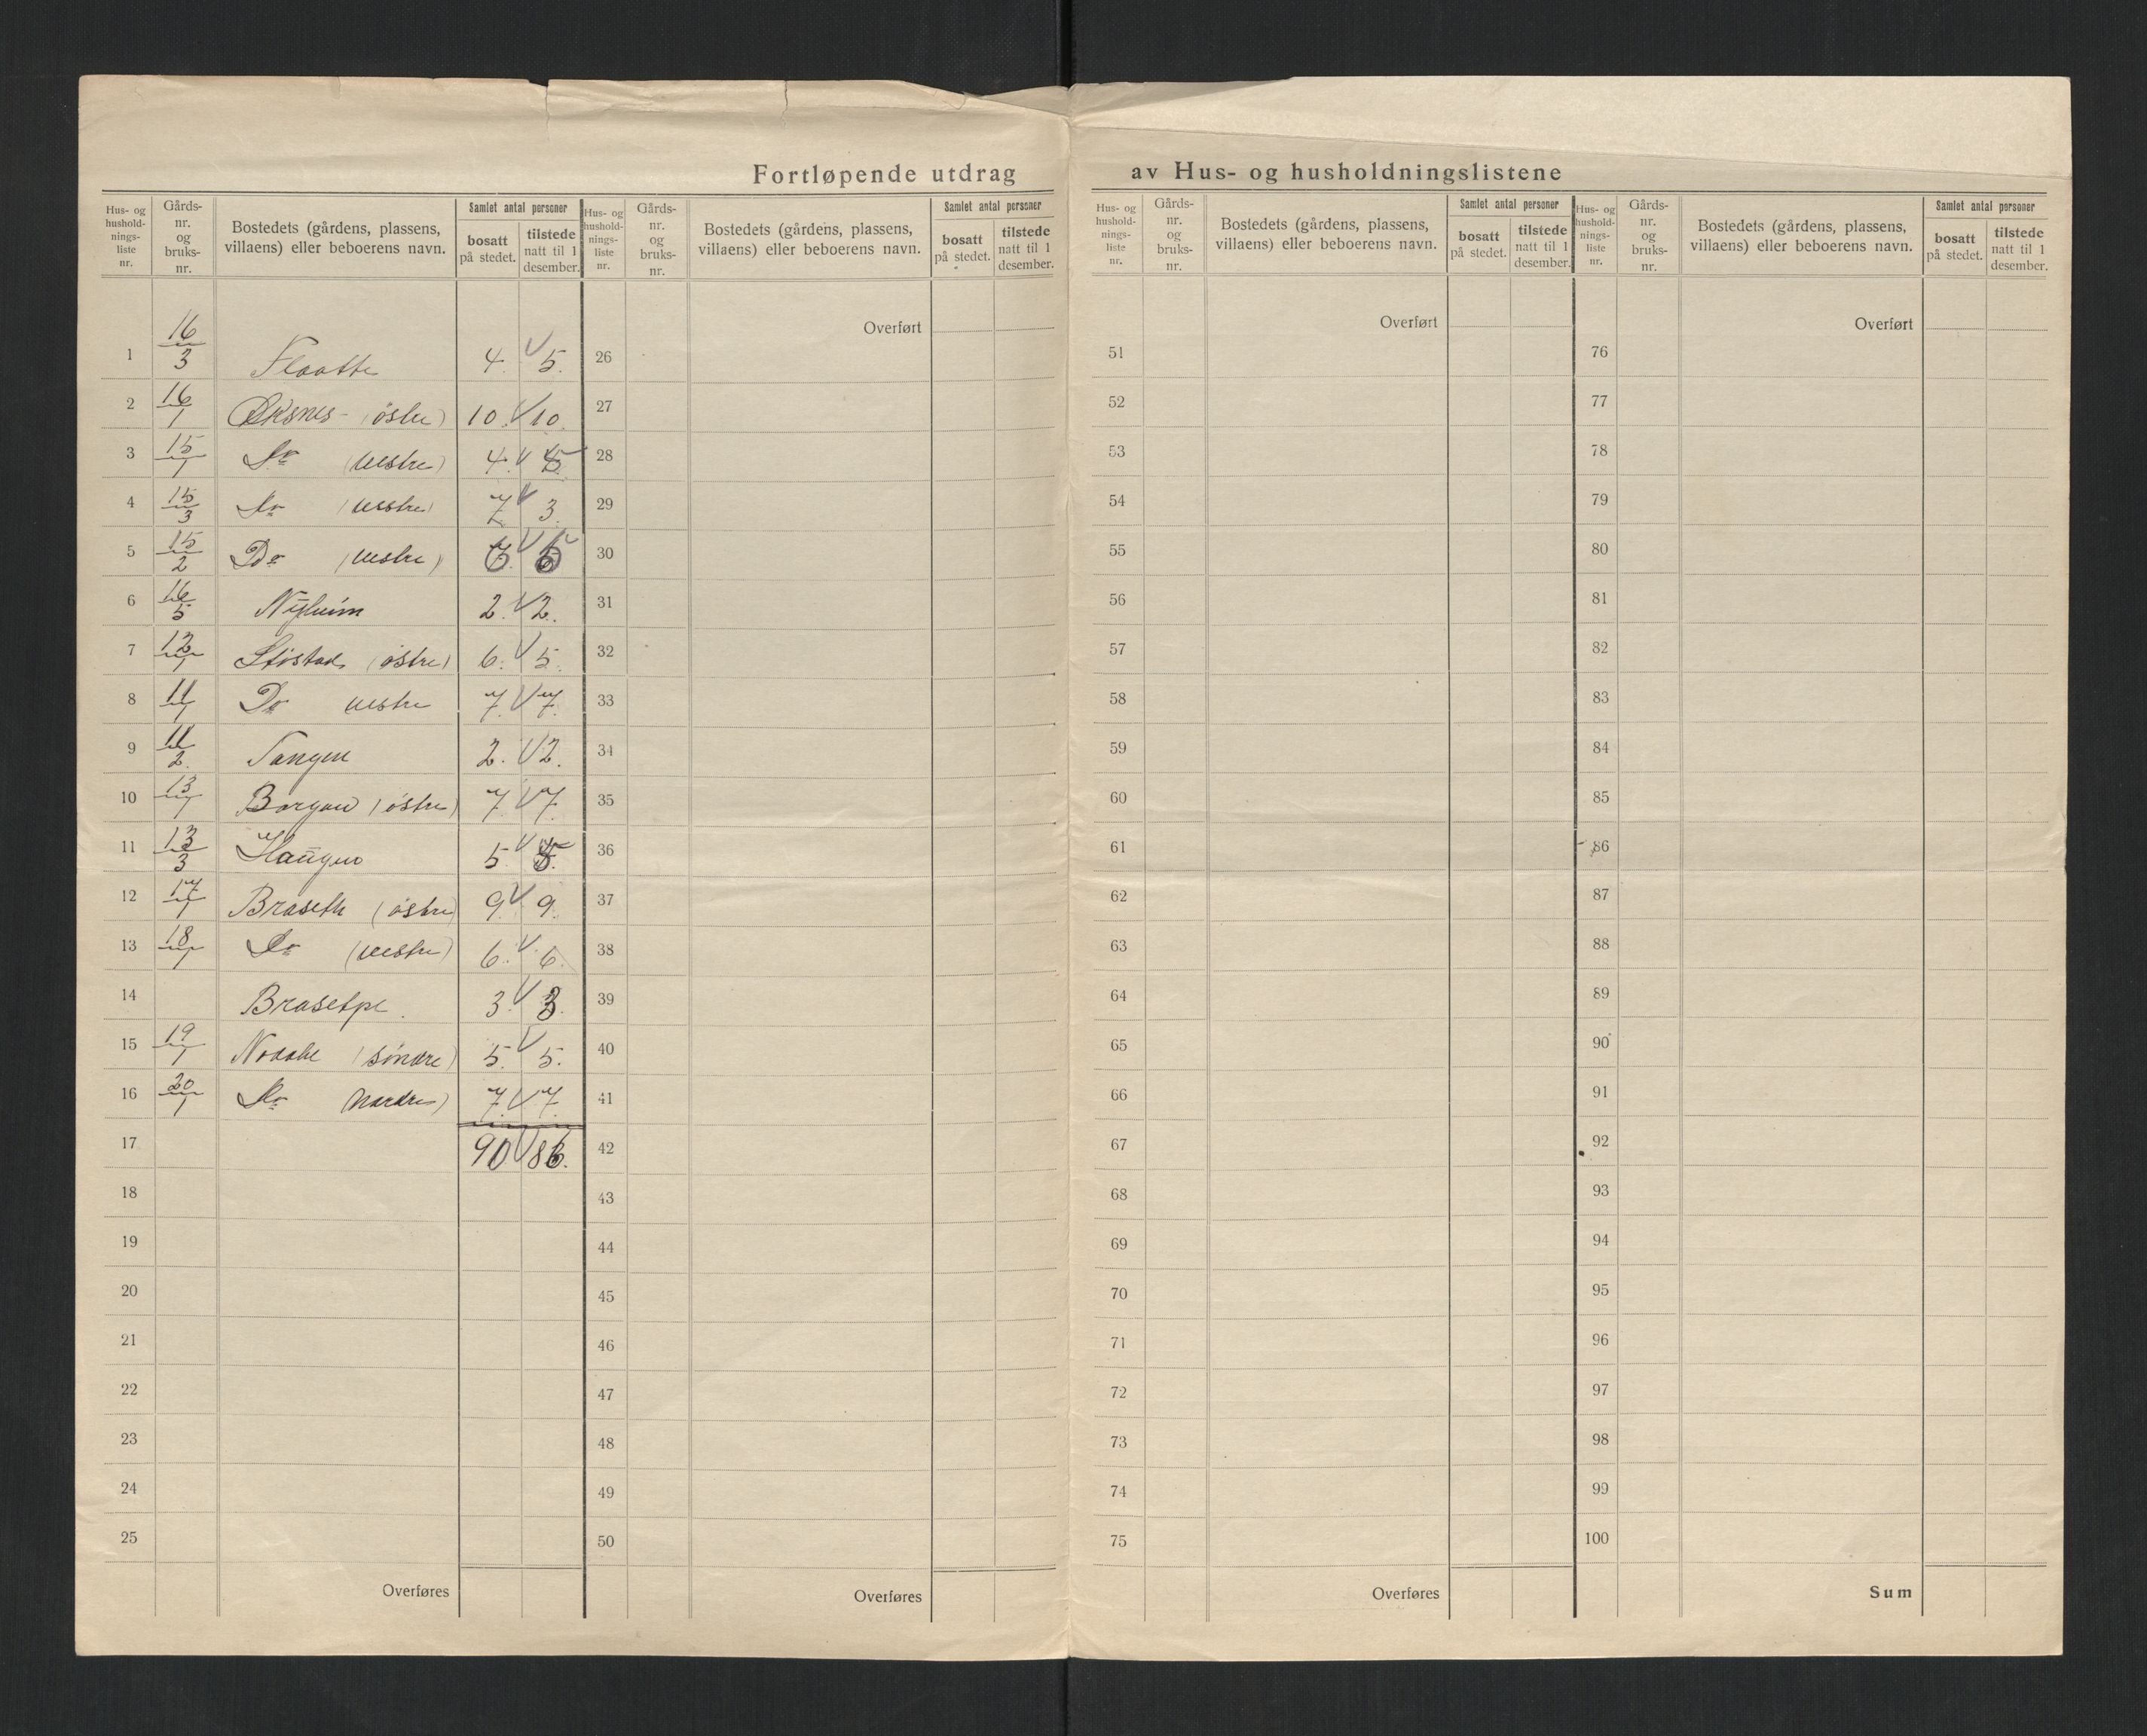 Fortløpende utdrag av Hus- og husholdningslistene
Hus- og hushold-nings-liste nr. Gårds-nr. og bruks-nr. Bostedets (gårdens, plassens, villaens) eller beboerens navn. Samlet antal personer bosatt på stedet. tilstede natt til 1 desember.
Hus- og hushold-nings-liste nr. Gårds-nr. og bruks-nr. Bostedets (gårdens, plassens, villaens) eller beboerens navn. Samlet antal personer bosatt på stedet. tilstede natt til 1 desember.
Hus- og hushold-nings-liste nr. Gårds-nr. og bruks-nr. Bostedets (gårdens, plassens, villaens) eller beboerens navn. Samlet antal personer bosatt på stedet. tilstede natt til 1 desember.
Hus- og hushold-nings-liste nr. Gårds-nr. og bruks-nr. Bostedets (gårdens, plassens, villaens) eller beboerens navn. Samlet antal personer bosatt på stedet. tilstede natt til 1 desember.
1 16/3 Flaatte 4. 5.
2 16/1 Øksnes (östre) 10. 10.
3 15/1 Do (vestre) 4. 5
4 15/3 Do (vestre) 7 3
5 15/2 Do (vestre)
6 16/5 Nyheim 2. 2.
7 12/1 Støstad (östre) 6. 5.
8 11/1 Do vestre 7. 7.
9 11/2. Tangen 2. 2.
10 13/1 Borgan (östre) 7. 7.
11 13/3 Haugen 5. 5.
12 17/1 Braseth (östre) 9. 9.
13 18/1 Do (vestre) 6. 6.
14 3. 3.
15 19/1 (söndre) 5. 5.
16 20/1 Do (nordre) 7. 7.
17 90 86.
18
19
20
21
22
23
24
25
Overføres
Overført
26
27
28
29
30
31
32
33
34
35
36
37
38
39
40
41
42
43
44
45
46
47
48
49
50
Overføres
Overført
51
52
53
54
55
56
57
58
59
60
61
62
63
64
65
66
67
68
69
70
71
72
73
74
75
Overføres
Overført
76
77
78
79
80
81
82
83
84
85
86
87
88
89
90
91
92
93
94
95
96
97
98
99
100
Sum